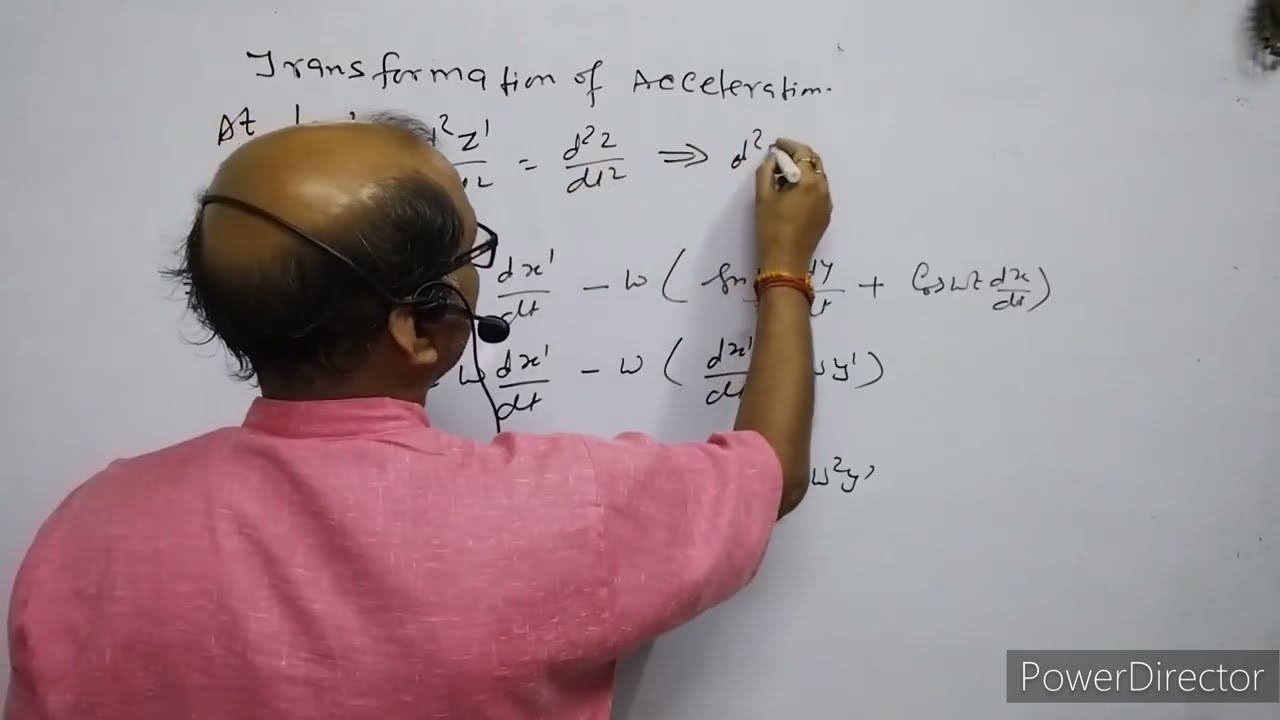 Transformation of Acceleration.
At d²z'/dt² = d²z/dt² ⇒ d²
dx'/dt - w ( dy/dt + Coswt dx/dt )
w dx'/dt - w ( dx'/dt wy' )
w²y'
PowerDirector